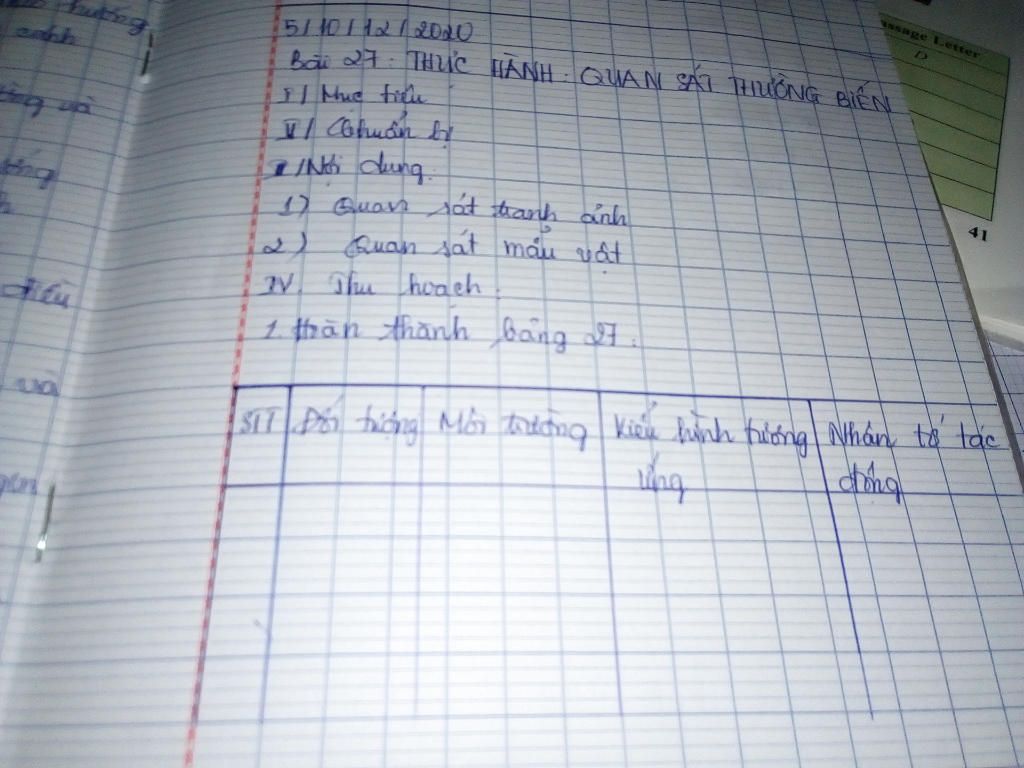 5/10/12/2020
Bài 27: THỰC HÀNH: QUAN SÁT THƯỜNG BIẾN
I/ Mục tiêu
II/ Chuẩn bị
I/Nội dung.
1) Quan sát tranh ảnh
2) Quan sát mẫu vật
IV. Thu hoạch.
1. Hoàn thành bảng 27.
STT Đối tượng Môi trường Kiểu hình tương ứng Nhân tố tác động
ssage Letter
D
41
và
điều
và